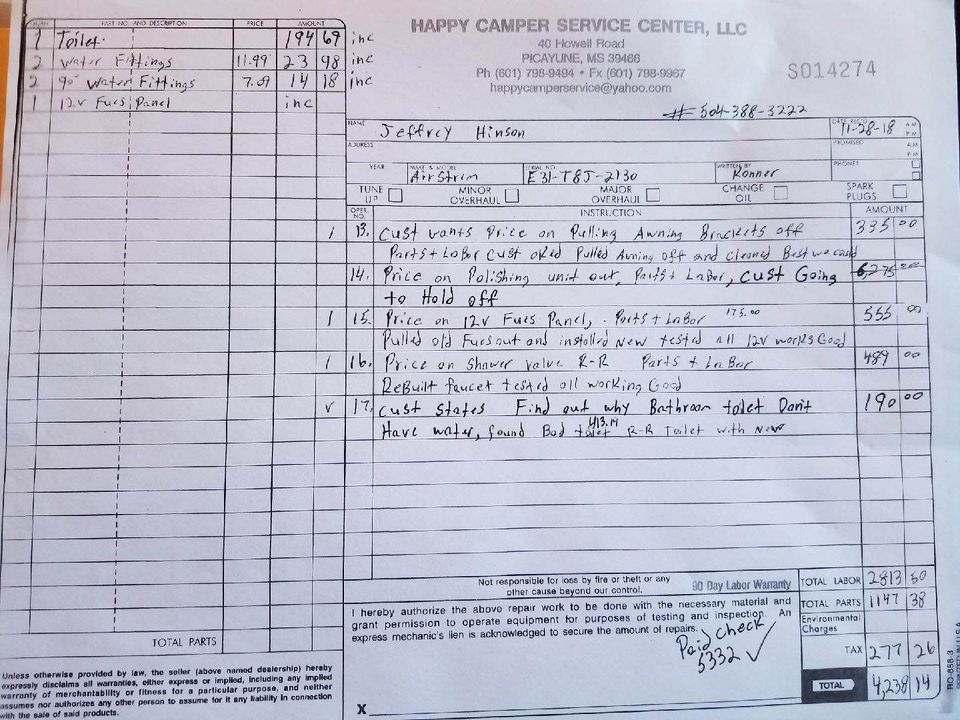 QUAN. PART NO. AND DESCRIPTION PRICE AMOUNT
1 Toilet. 194 69 inc
2 Water Fittings 11.99 23 98 inc
2 90° Water Fittings 7.09 14 18 inc
1 12v Fues Panel inc
TOTAL PARTS
Unless otherwise provided by law, the seller (above named dealership) hereby
expressly disclaims all warranties, either express or implied, including any implied
warranty of merchantability or fitness for a particular purpose, and neither
assumes nor authorizes any other person to assume for it any liability in connection
with the sale of said products.
HAPPY CAMPER SERVICE CENTER, LLC
40 Howell Road
PICAYUNE, MS 39466
Ph (601) 798-9494 • Fx (601) 798-9967
happycamperservice@yahoo.com
S014274
# 504-388-3222
NAME Jeffrey Hinson DATE REC'D 11-28-18 A.M.
P.M.
ADDRESS PROMISED A.M.
P.M.
YEAR MAKE & MODEL AirStrim SERIAL NO. E31-T8J-2130 WRITTEN BY Konner PHONE
TUNE UP MINOR OVERHAUL MAJOR OVERHAUL CHANGE OIL SPARK PLUGS
OPER. NO. INSTRUCTION AMOUNT
1 13. Cust wants Price on Pulling Awning Brackets off 335 00
Parts + Labor Cust oked Pulled Awning off and cleaned Best we could
14. Price on Polishing unit out, Parts + Labor, Cust Going 6,275 00
to Hold off
1 15. Price on 12v Fues Panel, Parts + Labor 175.00 555 00
Pulled old Fues out and installed New tested all 12v works Good
1 16. Price on Shower valve R-R Parts + Labor 489 00
ReBuilt faucet tested all working Good
v 17. Cust States Find out why Bathroom toilet Don't 190 00
413.14
Have water, found Bad toilet R-R Toilet with New
Not responsible for loss by fire or theft or any
other cause beyond our control.
90 Day Labor Warranty
TOTAL LABOR 2813 50
I hereby authorize the above repair work to be done with the necessary material and
grant permission to operate equipment for purposes of testing and inspection. An
express mechanic's lien is acknowledged to secure the amount of repairs.
TOTAL PARTS 1147 38
Environmental
Charges
Paid check
5332 ✓
TAX 277 26
TOTAL 4,238 14
X
RO-658-3
PRINTED IN U.S.A.